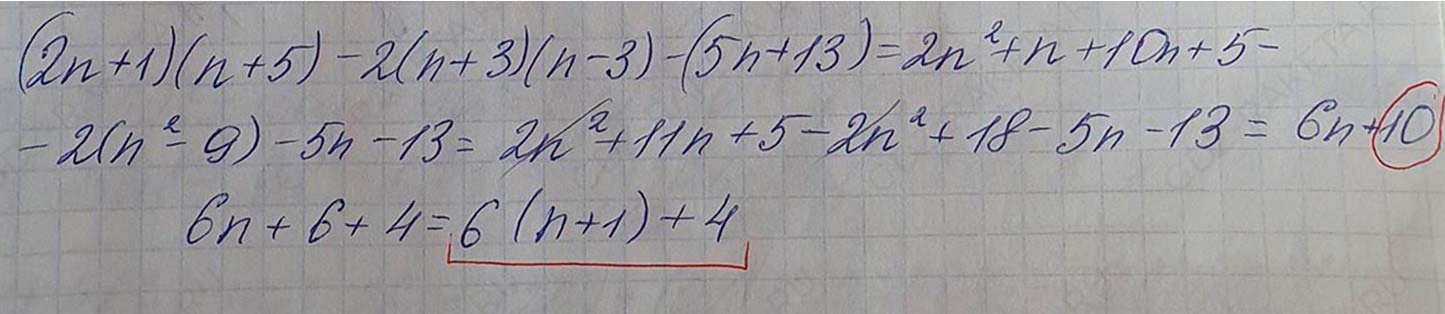 (2n+1)(n+5)-2(n+3)(n-3)-(5n+13)=2n²+n+10n+5-
-2(n²-9)-5n-13=2n²+11n+5-2n²+18-5n-13=6n+10
6n+6+4=6(n+1)+4